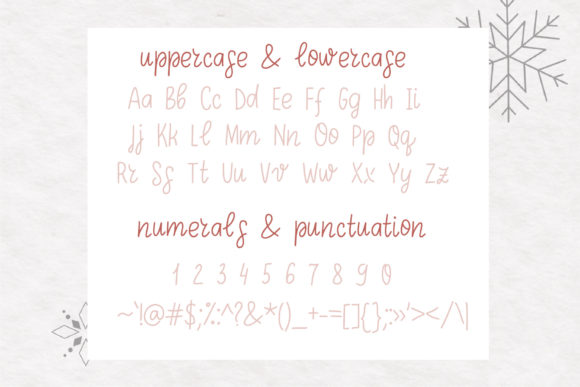 uppercase & lowercase
Aa Bb Cc Dd Ee Ff Gg Hh Ii
Jj Kk Ll Mm Nn Oo Pp Qq
Rr Ss Tt Uu Vv Ww Xx Yy Zz
numerals & punctuation
1 2 3 4 5 6 7 8 9 0
~`!@#$;%:^?&*()_+-=[]{};:»'></\|